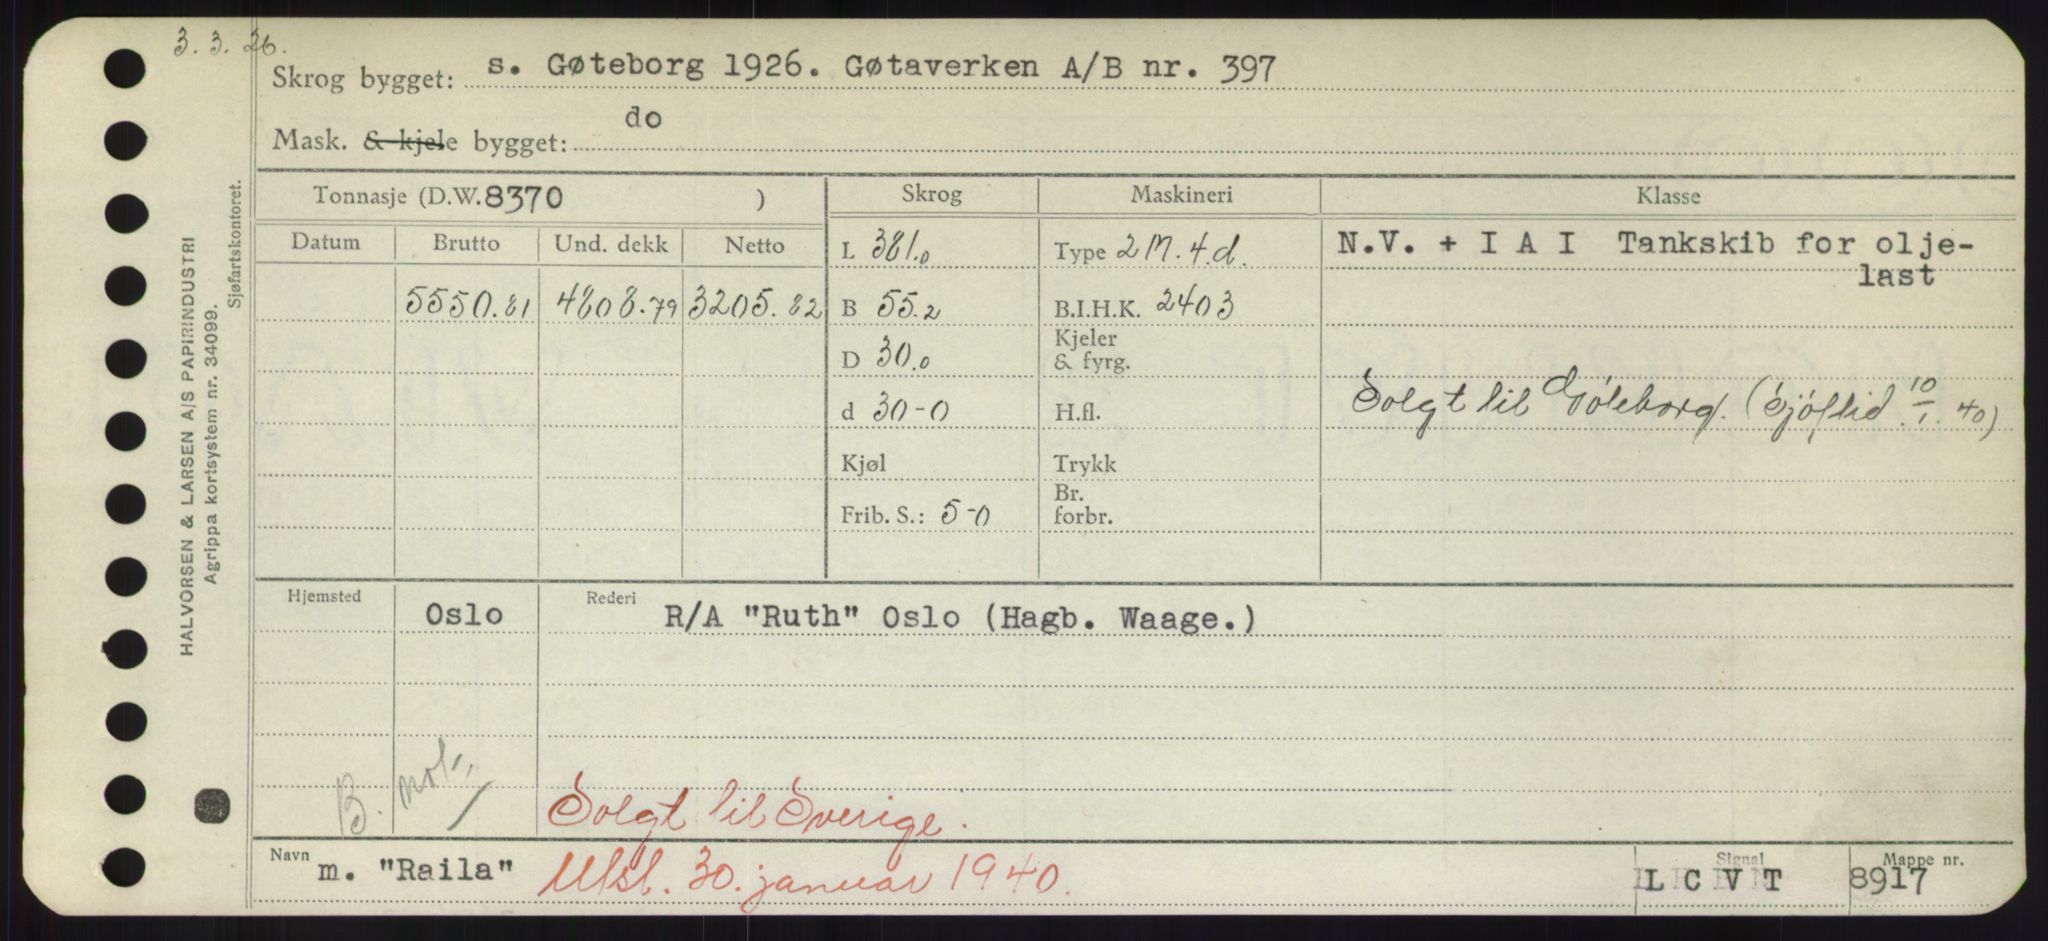 3. 3. 26.
Skrog bygget: s. Gøteborg 1926. Gøtaverken A/B nr. 397
Mask. & kjele bygget: do
Tonnasje (D.W. 8370 )
Skrog
Maskineri
Klasse
Datum Brutto Und. dekk Netto
L 381.0
Type 2 M. 4. d.
N.V. + I A I Tankskib for olje-
last
5550.81 4808.79 3205.82
B 55.2
B.I.H.K. 2403
D 30.0
Kjeler
& fyrg.
d 30-0
H.fl.
Solgt til Gøteborg. (Sjøftid 10/1. 40)
Kjøl
Trykk
Frib. S.: 5-0
Br.
forbr.
Hjemsted Oslo
Rederi R/A "Ruth" Oslo (Hagb. Waage.)
B.
Solgt til Sverige.
Navn m. "Raila" Utsl. 30. januar 1940.
Signal L C V T
Mappe nr. 8917
HALVORSEN & LARSEN A/S PAPIRINDUSTRI
Agrippa kortsystem nr. 34099.
Sjøfartskontoret.